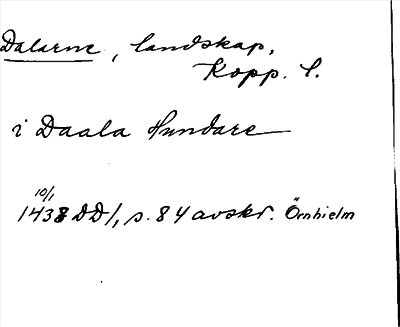 Dalarne, landskap,
Kopp. l.
i Daala Hundare
10/1
1438 DD 1, s. 84 avskr. Örnhielm